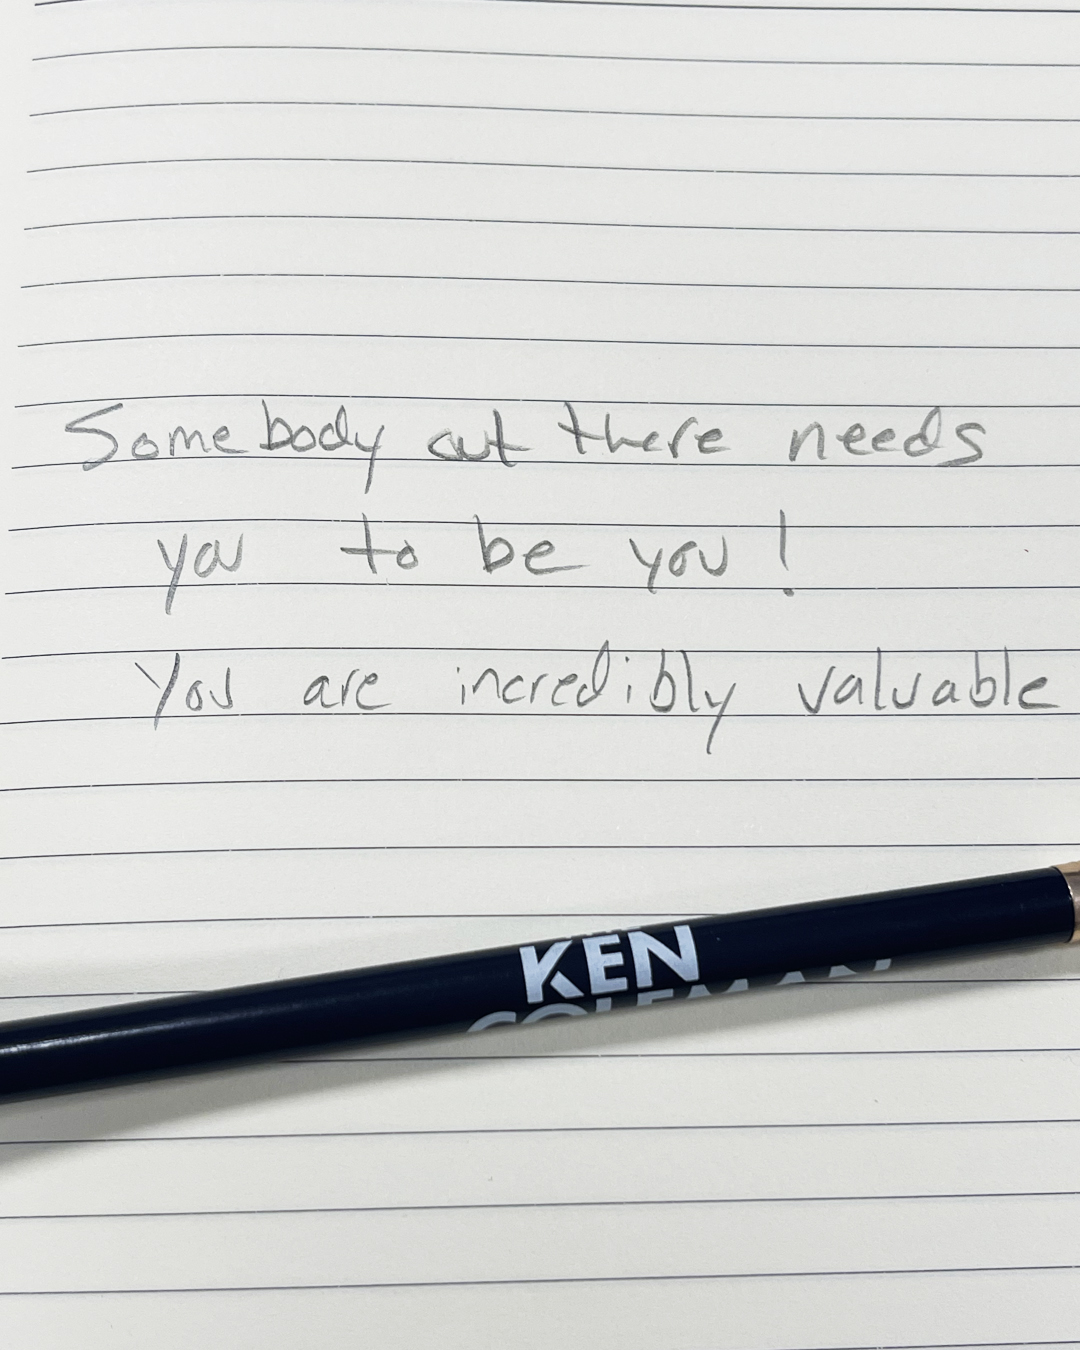 Somebody out there needs
you to be you!
You are incredibly valuable
KEN
COLEMAN